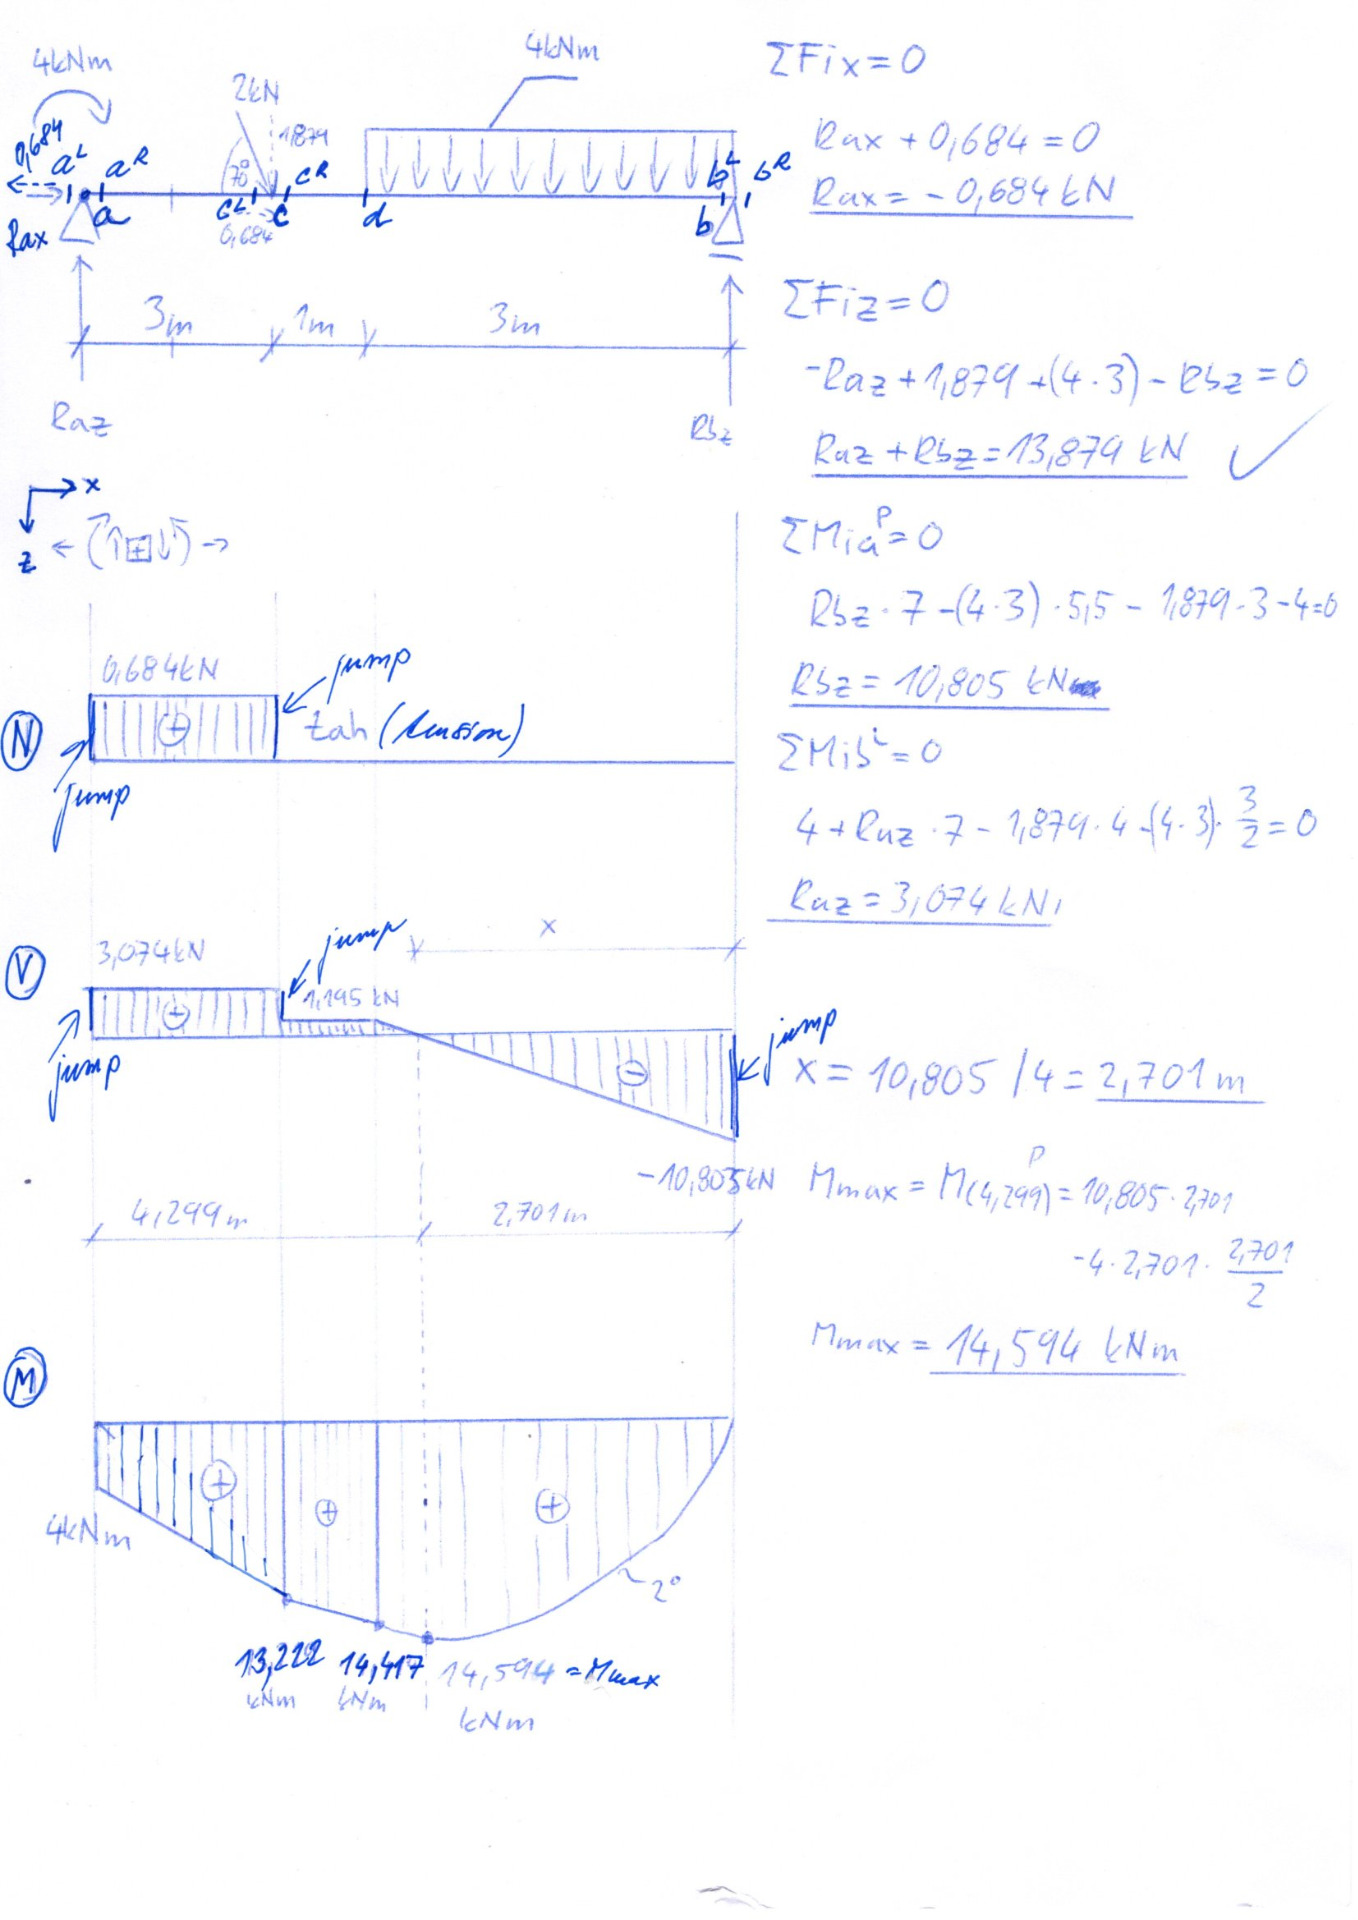 4kNm
2kN
4kNm
0,684
1,879
70°
aL
aR
cL
cR
bL
bR
Rax
a
c
d
b
0,684
3m
1m
3m
Raz
Rbz
x
z
ΣFix=0
Rax + 0,684 = 0
Rax = - 0,684 kN
ΣFiz=0
-Raz + 1,879 + (4·3) - Rbz = 0
Raz + Rbz = 13,879 kN ✓
ΣMiaP=0
Rbz · 7 - (4·3) · 5,5 - 1,879 · 3 - 4=0
Rbz = 10,805 kN
ΣMibL=0
4 + Raz · 7 - 1,879 · 4 - (4·3) · 3/2 = 0
Raz = 3,074 kN
N
0,684kN
jump
+
tah (tension)
jump
V
3,074kN
jump
1,195 kN
x
+
jump
-
jump
-10,805kN
x = 10,805 / 4 = 2,701 m
4,299m
2,701m
Mmax = M(4,299)P = 10,805 · 2,701
-4 · 2,701 · 2,701/2
Mmax = 14,594 kNm
M
+
+
+
4kNm
2°
13,222 kNm
14,417 kNm
14,594 = Mmax
kNm